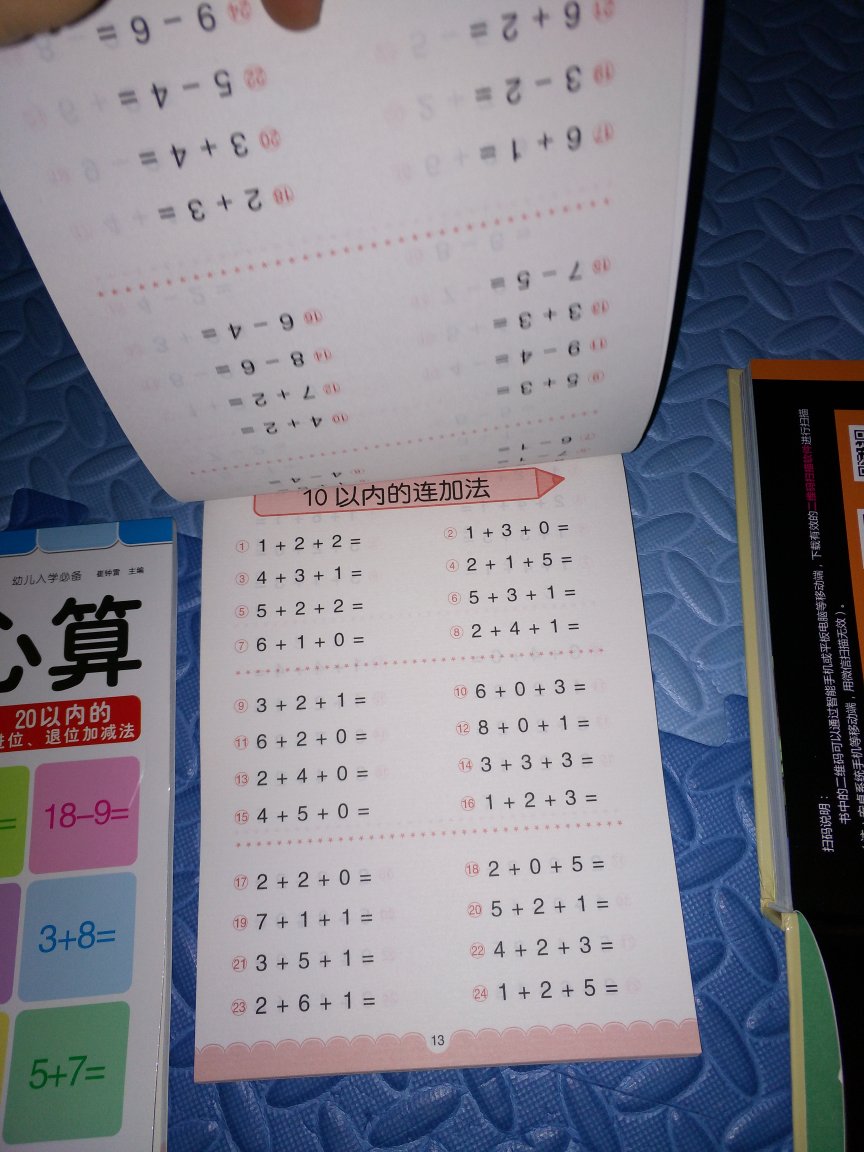 ㉔ 9 - 6 =
㉑ 6 + 2 =
㉒ 5 - 4 =
⑲ 3 - 2 =
⑳ 3 + 4 =
⑰ 6 + 1 =
⑱ 2 + 3 =
⑮ 7 - 5 =
⑯ 6 - 4 =
⑬ 3 + 3 =
⑭ 8 - 6 =
⑪ 9 - 4 =
⑫ 7 + 2 =
⑨ 5 + 3 =
⑩ 4 + 2 =
⑦ 6 - 1 =
⑧ 4 - 4 =
10以内的连加法
① 1 + 2 + 2 =
② 1 + 3 + 0 =
③ 4 + 3 + 1 =
④ 2 + 1 + 5 =
⑤ 5 + 2 + 2 =
⑥ 5 + 3 + 1 =
⑦ 6 + 1 + 0 =
⑧ 2 + 4 + 1 =
⑨ 3 + 2 + 1 =
⑩ 6 + 0 + 3 =
⑪ 6 + 2 + 0 =
⑫ 8 + 0 + 1 =
⑬ 2 + 4 + 0 =
⑭ 3 + 3 + 3 =
⑮ 4 + 5 + 0 =
⑯ 1 + 2 + 3 =
⑰ 2 + 2 + 0 =
⑱ 2 + 0 + 5 =
⑲ 7 + 1 + 1 =
⑳ 5 + 2 + 1 =
㉑ 3 + 5 + 1 =
㉒ 4 + 2 + 3 =
㉓ 2 + 6 + 1 =
㉔ 1 + 2 + 5 =
13
幼儿入学必备 崔钟雷 主编
心算
20以内的
进位、退位加减法
=
18-9=
3+8=
5+7=
扫码说明：
书中的二维码可以通过智能手机或平板电脑等移动端，下载有效的二维码扫描软件进行扫描
安卓系统手机等移动端，用微信扫描无效）。